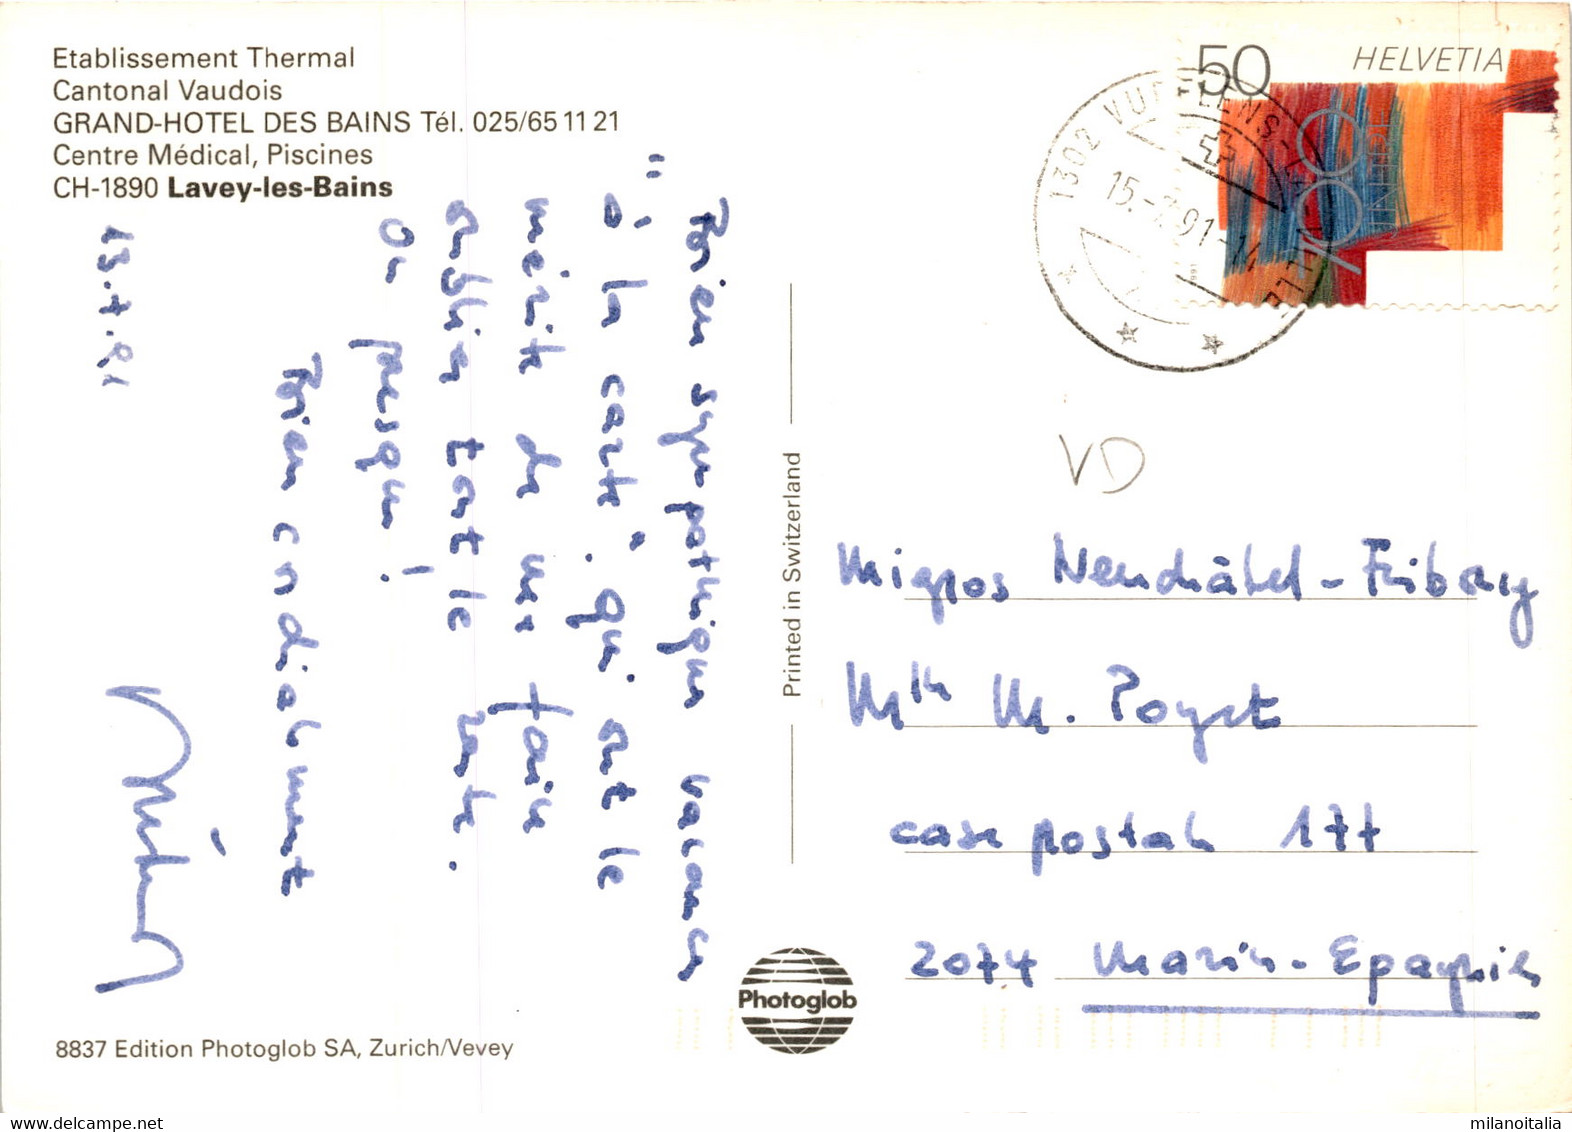 Etablissement Thermal
Cantonal Vaudois
GRAND-HOTEL DES BAINS Tél. 025/65 11 21
Centre Médical, Piscines
CH-1890 Lavey-les-Bains
50
HELVETIA
700
1991
1302 VUFFLENS-LA-VILLE
15.-7.91-14
VD
Bien sympathiques vacances
"à la carte", qui ont le
mérite de me faire
oublier tout le reste.
Ou presque!
Bien cordialement
13.7.91
Printed in Switzerland
Migros Neuchâtel-Fribourg
Mlle M.
case postale 177
2074 Marin-Epagnier
Photoglob
8837 Edition Photoglob SA, Zurich/Vevey
milanoitalia